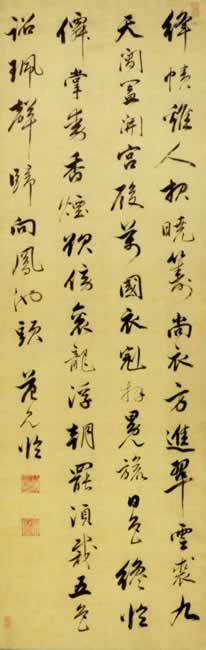 絳幘雞人報曉籌尚衣方進翠雲裘九
天閶闔開宮殿萬國衣冠拜冕旒日色纔臨
僊掌動香煙欲傍袞龍浮朝罷須裁五色
詔珮聲歸向鳳池頭 范允臨